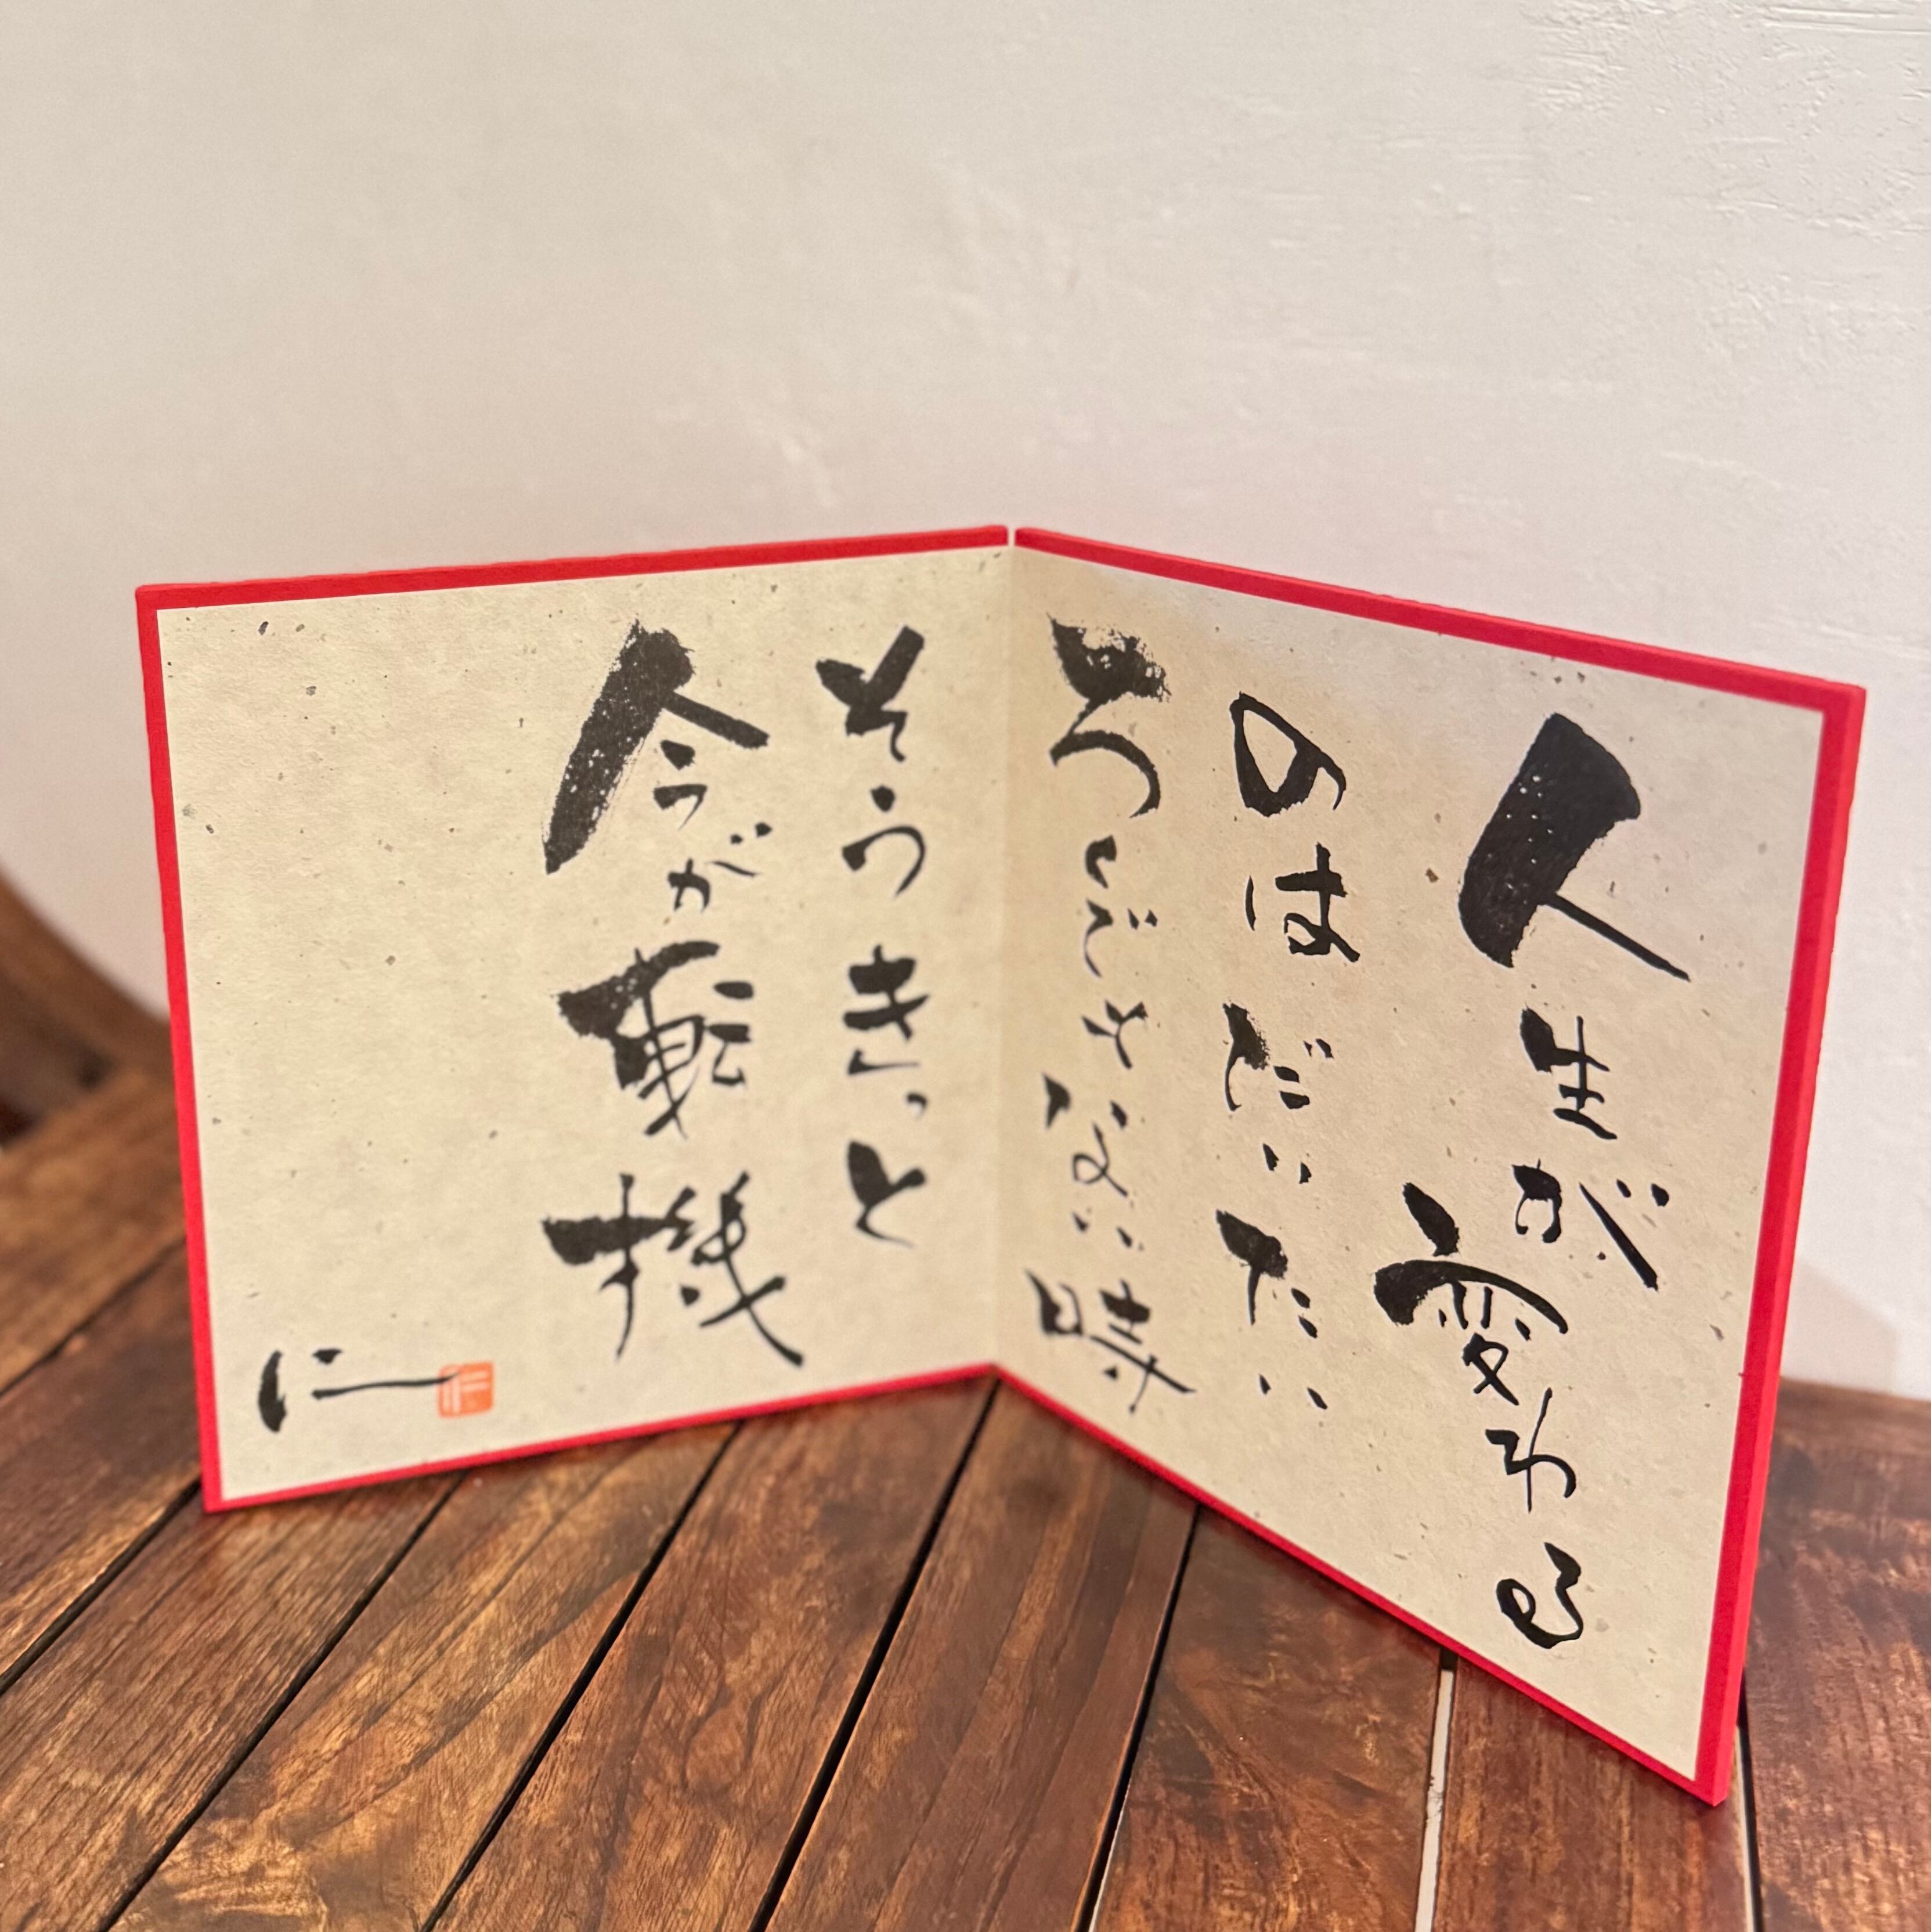 人生が変わる
のはだいたい
ろくでもない時
そうきっと
今が転機
仁